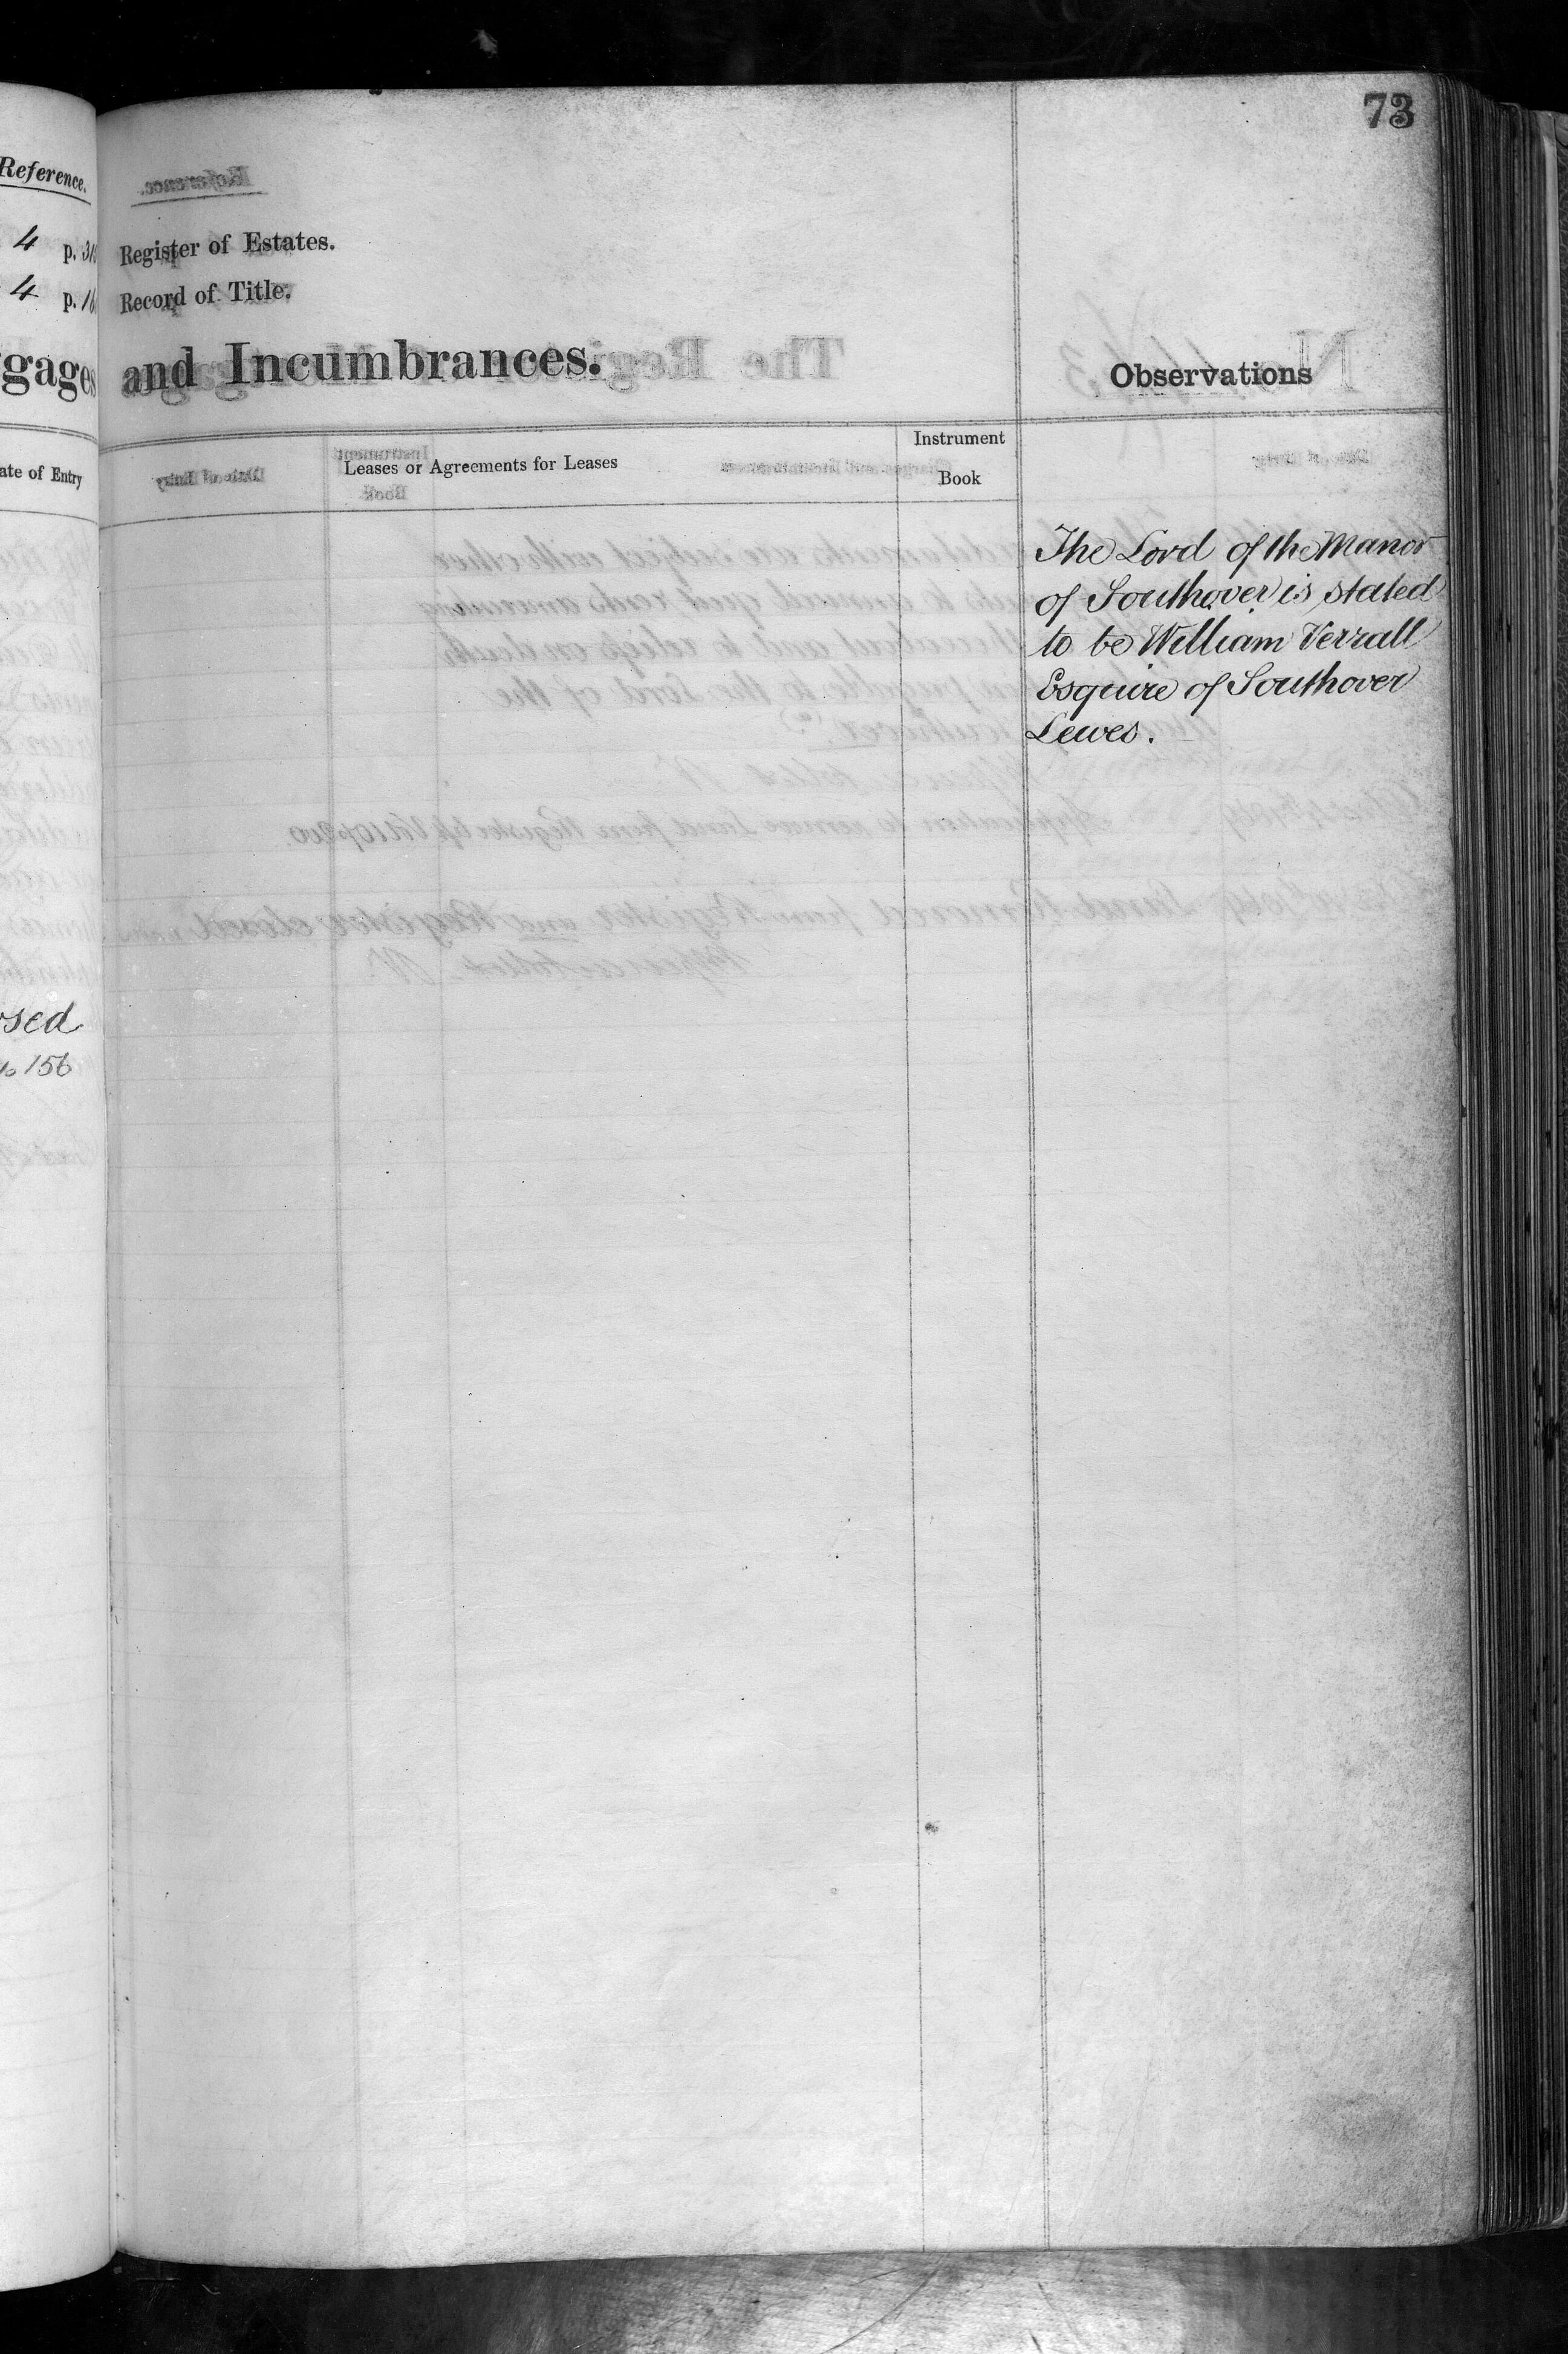 73
Reference.
4 p. 31
4 p. 16
Register of Estates.
Record of Title.
gages and Incumbrances.
Observations
ate of Entry
Leases or Agreements for Leases
Instrument
Book
The Lord of the Manor
of Southover is stated
to be William Verrall
Esquire of Southover
Lewes.
sed
156